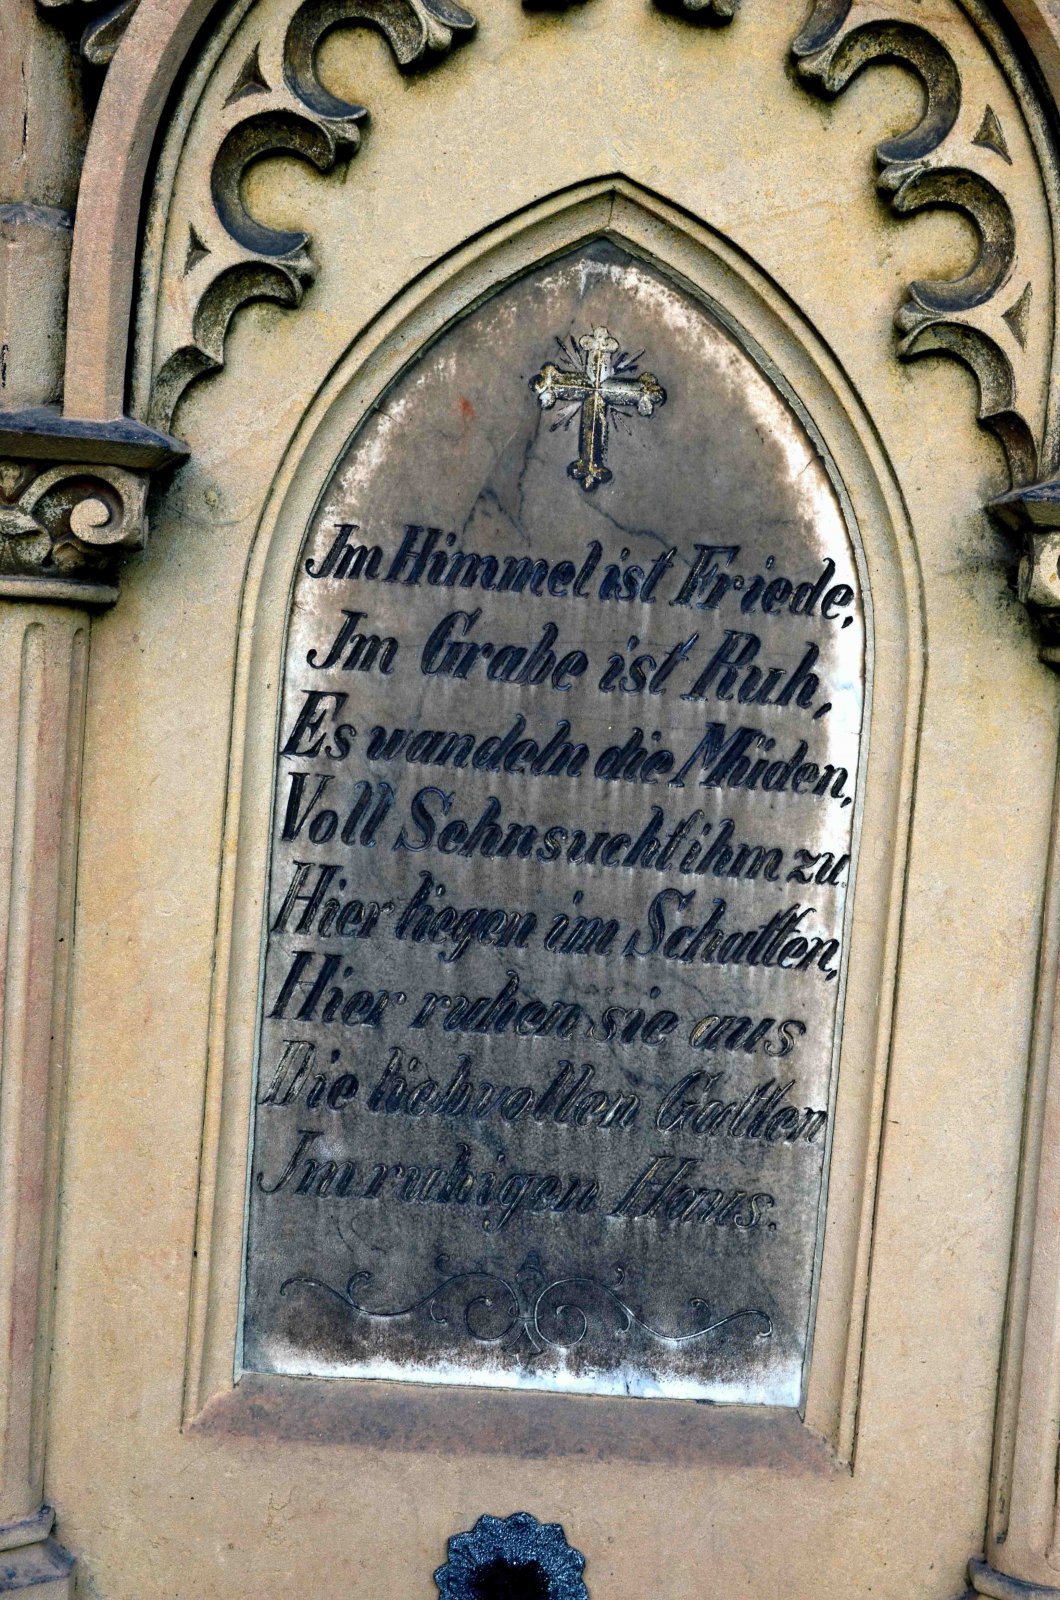 Im Himmel ist Friede,
Im Grabe ist Ruh,
Es wandeln die Müden,
Voll Sehnsucht ihm zu.
Hier liegen im Schatten,
Hier ruhen sie aus
Die liebvollen Gatten
Im ruhigen Haus.